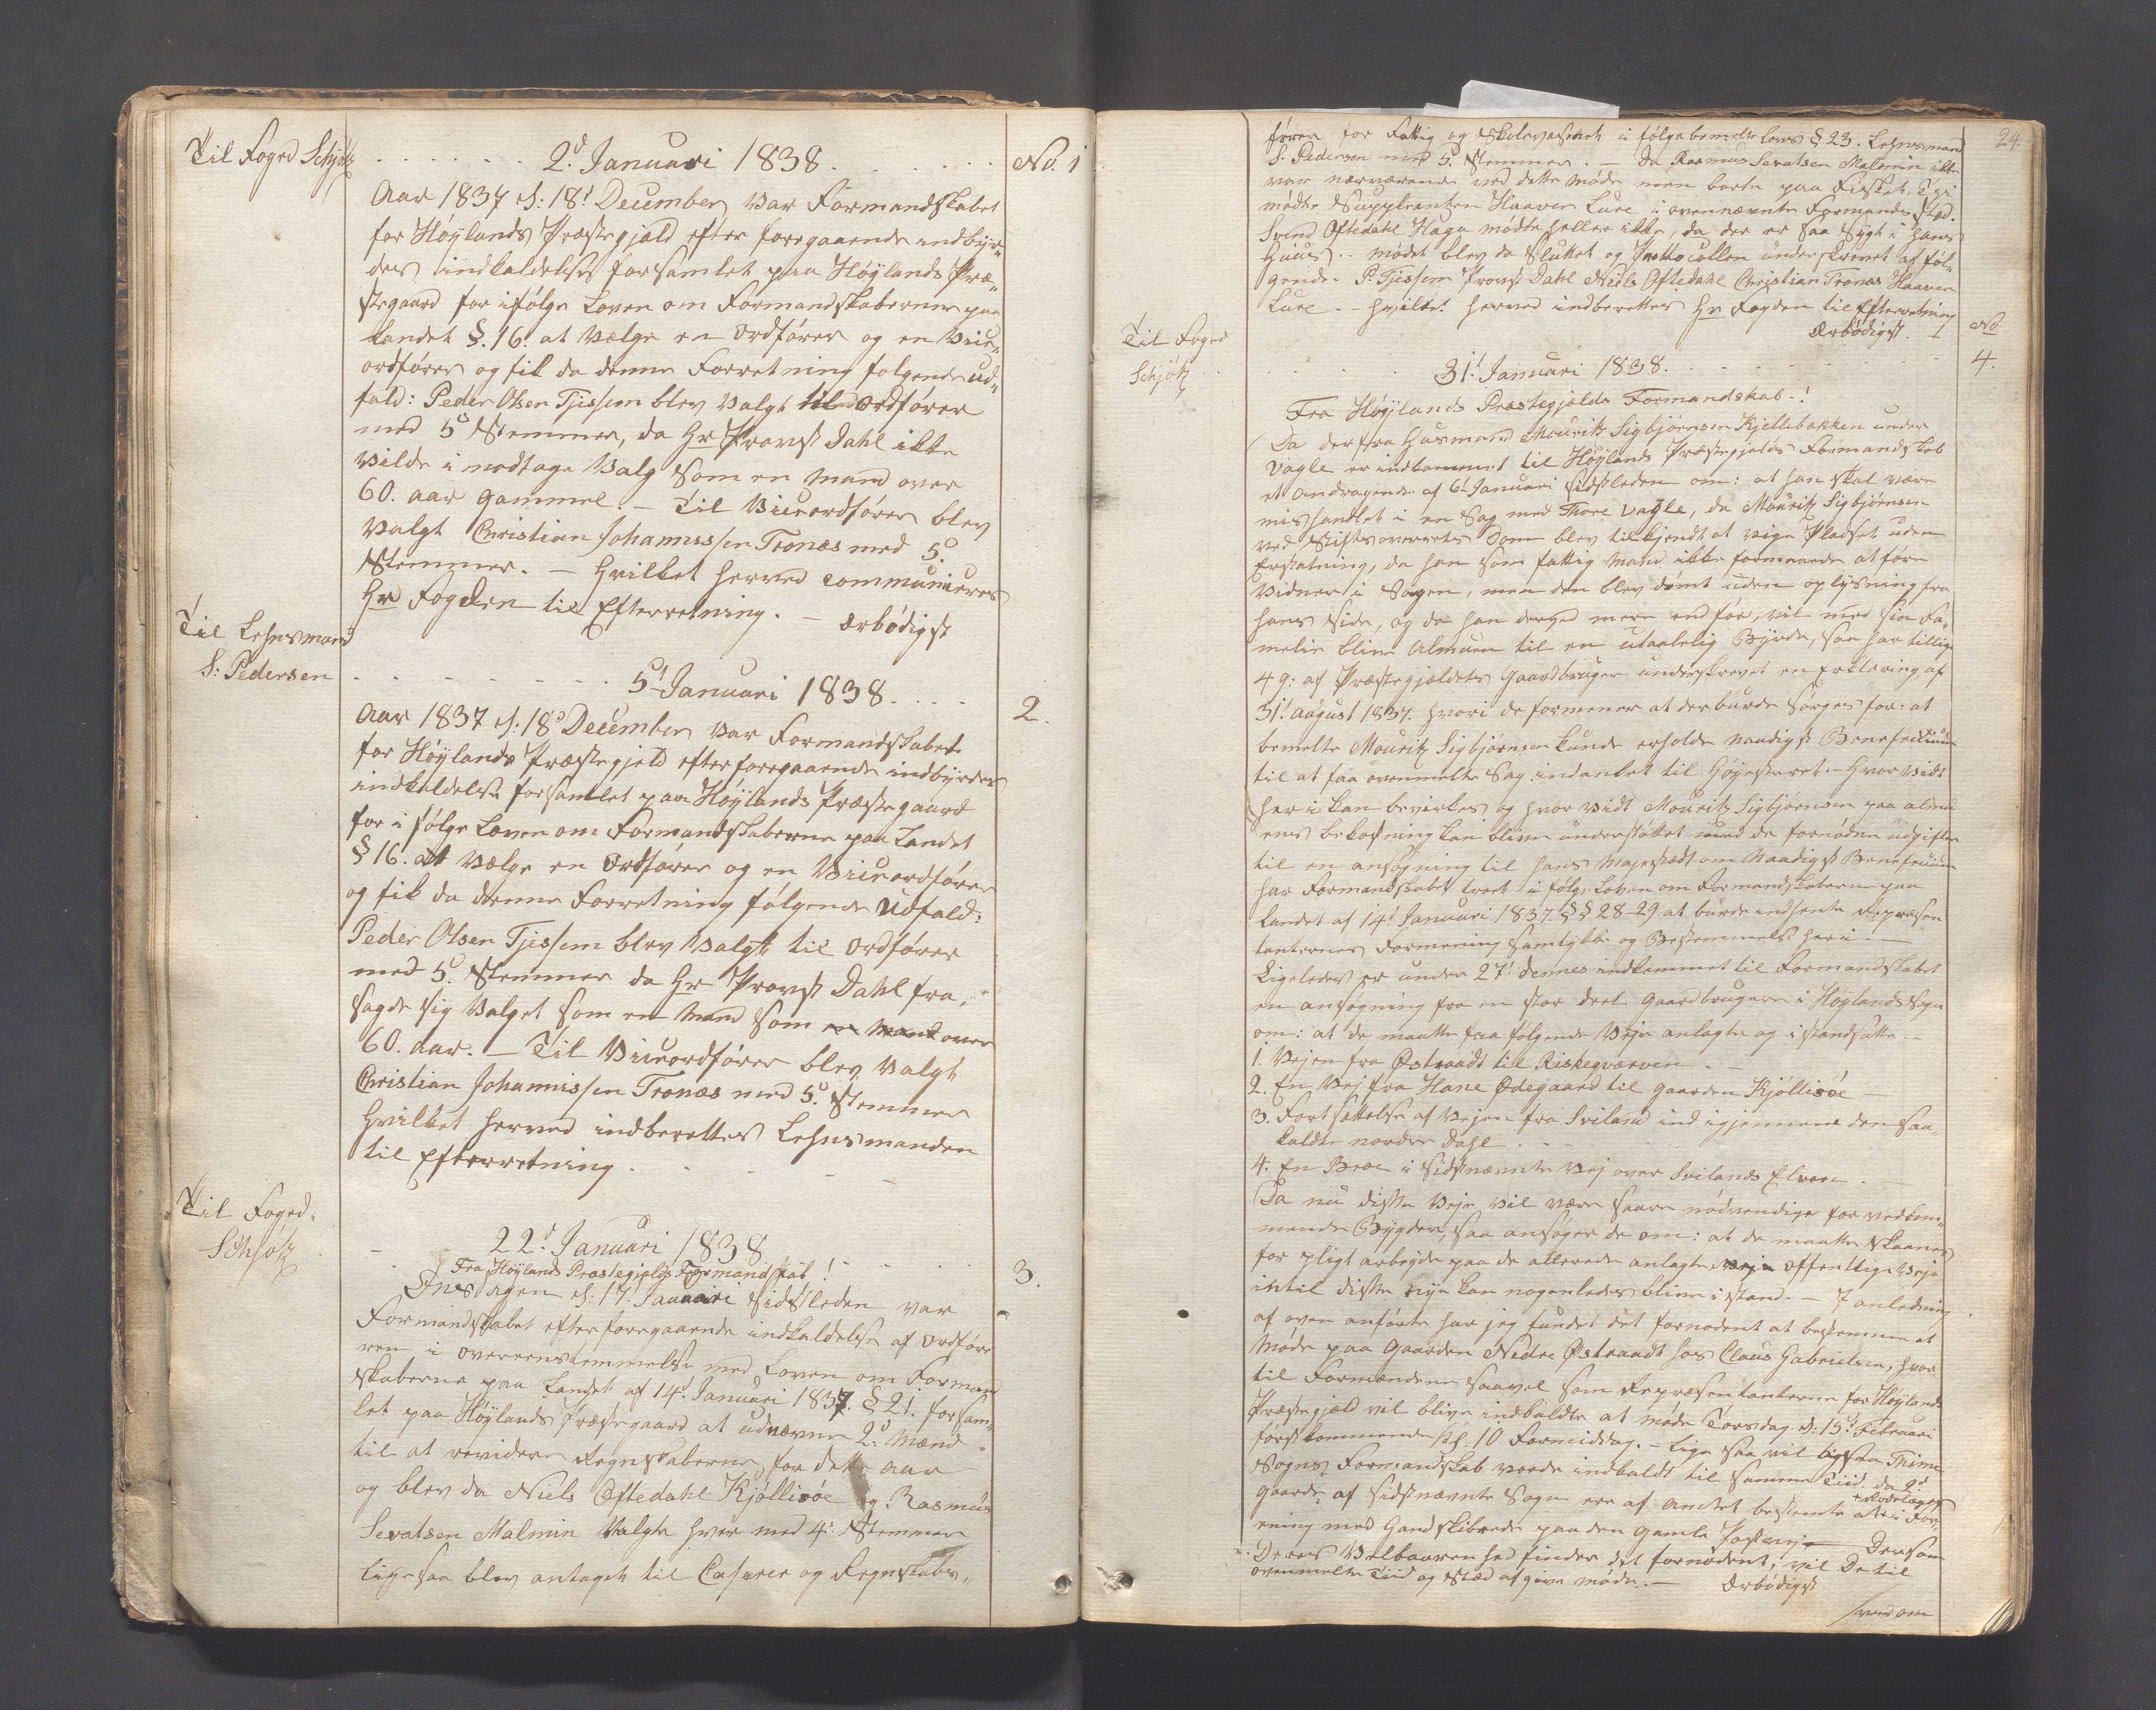 Til Foged Schjøtz
2d Januari 1838.
No. 1
Aar 1837 d: 18d December var Formandskabet
for Höÿlands Præstegjæld efter foregaaende indbÿr„
des indkaldelse forsamlet paa Höÿlands Præ„
stegaard for ifölge Loven om Formandskaberne paa
Landet §. 16. at vælge en Ordförer og en Vice„
ordförer og fik da denne Forretning fölgende ud„
fald: Peder Olsen Tjessem blev valgt til Ordförer
med 5 Stemmer, da Hr Provst Dahl ikke
vilde imodtage Valg som en Mand over
60. aar gammel. – Til Viceordförer blev
valgt Christian Johannessen Tronæs med 5
Stemmer. – Hvilket herved communiceres
Hr Fogden til Efterretning. – Ærbödigst
Til Lehnsmand
S: Pedersen
5t Januari 1838.
2.
Aar 1837 d: 18d December var Formandskabet
for Höÿlands Præstegjeld efter foregaaende indbÿrdes
indkaldelse forsamlet paa Höÿlands Præstegaard
for i fölge Loven om Formandskaberne paa Landet
§ 16. at vælge en Ordförer og en Viceordförer
og fik da denne Forretning fölgende Udfald:
Peder Olsen Tjessem blev valgt til Ordförer
med 5. Stemmer da Hr Provst Dahl fra„
sagde sig Valget som en Mand som en Mand over
60. aar. – Til Viceordförer blev valgt
Christian Johannissen Tronæs med 5. Stemmer
Hvilket herved indberettes Lehnsmanden
til Efterretning.
Til Foged
Schjøtz
22d Januari 1838
Fra Höÿlands Præstegjelds Formandskab!
3.
Onsdagen d: 17. Januari sidstleden var
Formandskabet efter foregaaende indkaldelse af Ordföre
ren i overeenstemmelse med Loven om Forman
skaberne paa Landet af 14d Januari 1837. § 21. forsam„
let paa Höÿlands Præstegaard at udnævne 2d Mænd
til at revidere Regnskaberne for dette Aar
og blev da Niels Oftedahl Kjöllisöe og Rasmus
Sevatsen Malmin valgte hver med 4. Stemmer
ligesaa blev antaget til Caserer og Regnskabs„
24.
förer for Fattig og Skolevæsenet i fölge bemelte Lovs § 23. Lehnsmand
S. Pedersen med 5. Stemmer. – Da Rasmus Sevatsen Malmin ikke
var nærværende ved dette Möde men borte paa Fisket,
mödte Suppleanten Haaver Lure i ovennævnte Formands Sted.
Svend Oftedahl Hage mödte heller ikke, da der er saa Sÿgt i hans
Huus. – Mödet blev da Sluttet og Prottocollen underskrevet af föl„
gende. P. Tjessem Provst Dahl Niels Oftedahl Christian Tronæs Haaver
Lure. – Hvilket herved indberettes Hr Fogden til Efterretning
Ærbödigst.
Til Foged
Schjøtz
31t Januari 1838.
No
4.
Fra Höÿlands Præstegjælds Formandskab-!
Da der fra Husmand Mouritz Sigbjörnsen Kjellebakken under
Vagle er indkommet til Höÿlands Præstegjelds Formandskab
et Andragende af 6t Januari sidstleden om: at han skal være
mishandlet i en Sag med Thore Vagle, da Mouritz Sigbjörnsen
ved Stiftsoverrets Dom blev tilkjendt at vige Pladset uden
Erstatning, da han som fattig Mand ikke formaaede at före
Vidner i Sagen, men den blev dömt uden oplÿsning fra
hans Side, og da han derved mere end för, vil med sin Fa„
melie blive Almuen til en utaalelig Bÿrde, saa har tillige
49: af Præstegjældets Gaardbruger underskrevet en Erklæring af
31t August 1837. hvori de formener at der burde Sörges for: at
bemelte Mouritz Sigbjörnsen kunde erholde naadigst Beneficium
til at faa ovenmelte Sag indanket til Höÿesteret. – Hvorvidt
heri kan bevirkes og hvor vidt Mouritz Sigbjörnsen paa Almu
ens bekostning kan blive understöttet med de fornödne udgifter
til en ansögning til Hans Majestædt om Naadigst Beneficium
har Formandskabet troet i fölge Loven om Formandskaberne paa
Landet af 14d Januari 1837. §§ 28-29. at burde indhente Repræsen
tanternes Formening Samtÿkke og Bestemmelse heri. –
Ligeledes er under 27d dennes indkommet til Formandskabet
en ansögning fra en stor Deel Gaardbrugere i Höÿlands Sogn
om: at de maatte faa fölgende Veje anlagte og istandsatte. –
1. Vejen fra Østraadt til Riskeqværven. –
2. En Vej fra Hane Ødegaard til Gaarden Kjöllisöe –
3. Fortsættelse af Vejen fra Sviland ind igjennem den saa„
kaldte nordre Dahl.
4. En Broe i sidstnævnte Vej over Svilands Elven.
Da nu disse Veje vil være saare nödvendige for vedkom„
mende Bÿgder, saa ansöger de om: at de maatte Skaanes
for pligt arbeÿde paa de allerede anlagte Veje offentlige Veje
intil disse nÿe kan nogenledes blive i stand. – I anledning
af oven anförte har jeg fundet det fornödent at bestemme et
Möde paa Gaarden Nedre Østraadt hos Claus Gabrielsen, hvor
til Formændene saavel som Repræsentanterne for Höÿlands
Præstegjæld vil blive indkaldte at möde Torsdag d: 15d Februari
förstkommende Kl. 10 Formiddag. – Lige saa vil ogsaa Thime
Sogns Formandskab vorde indkaldt til samme Tiid da 2d
Gaarde af sidstnævnte Sogn ere af Amtet bestemte at i For„
ening med Gandskibrede paa den gamle Postvej Dersom
Deres Velbaarenhed finder det fornödent, vil De til
ovenmelte Tiid og Sted afgive Möde. – Ærbödigst
vend om